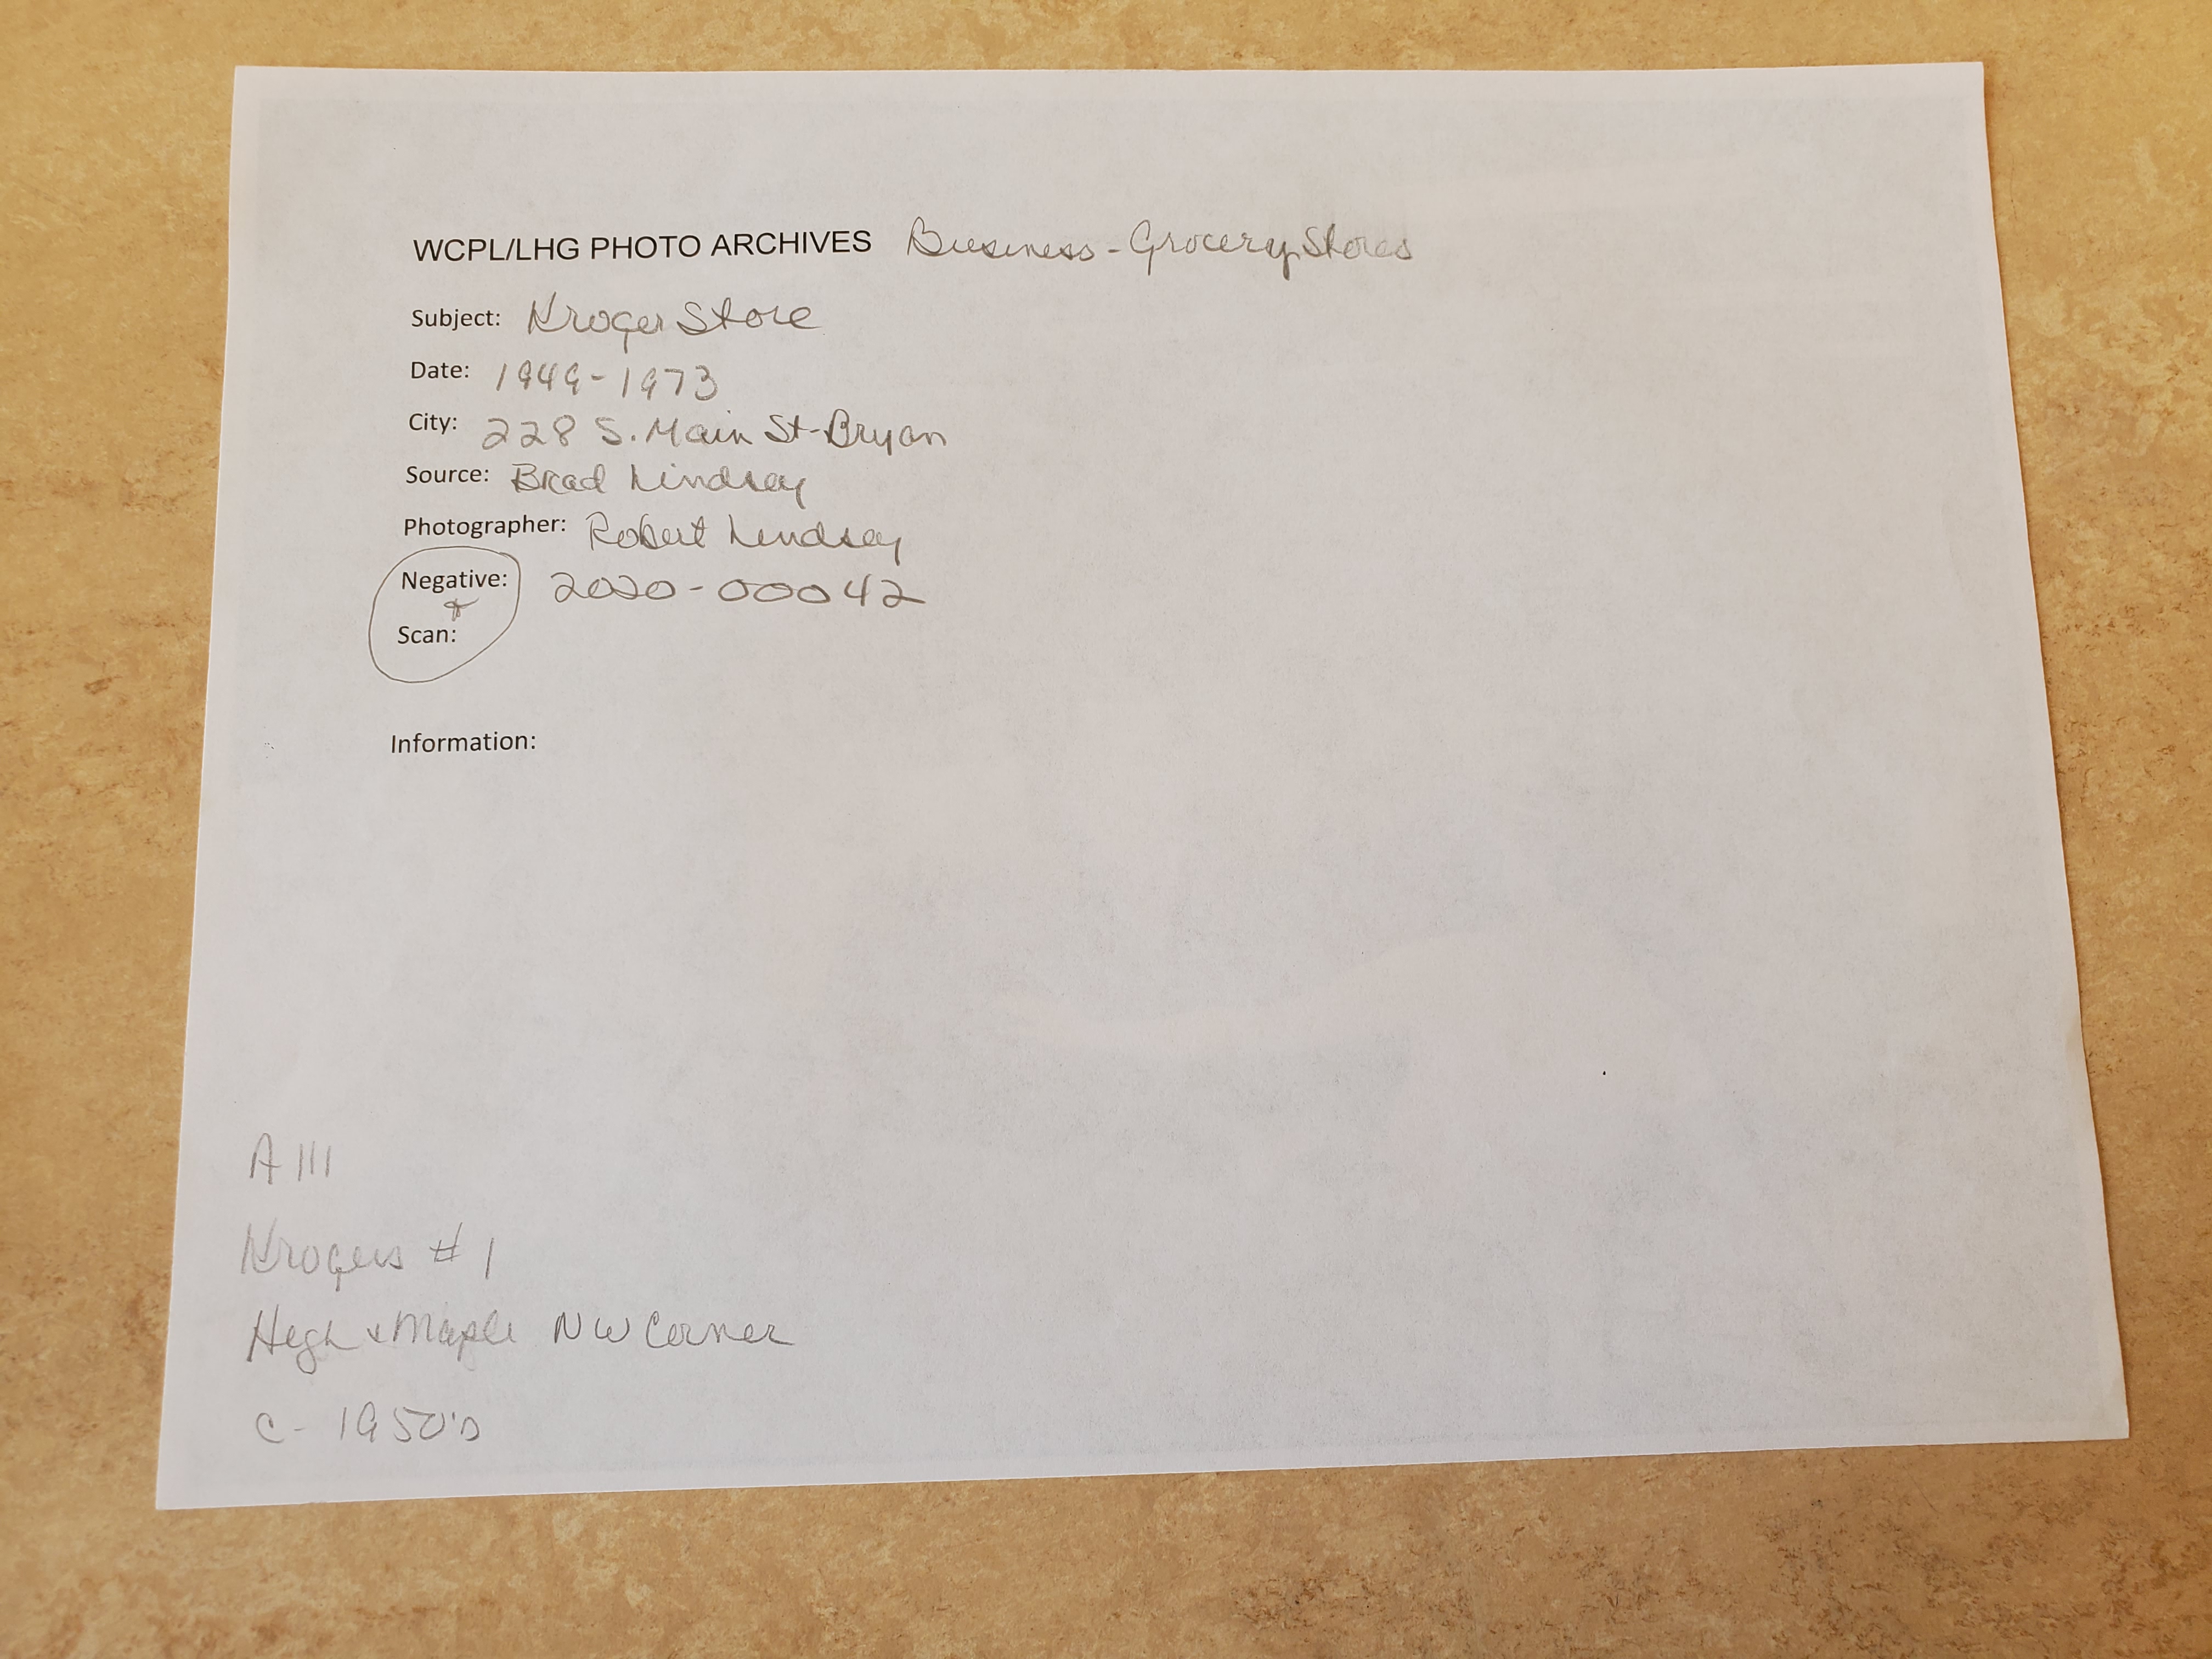 WCPL/LHG PHOTO ARCHIVES Business - Grocery Stores
Subject: Kroger Store
Date: 1949-1973
City: 228 S. Main St-Bryan
Source: Brad Lindsay
Photographer: Robert Lindsay
Negative: 2020-00042
+
Scan:
Information:
A 111
Krogers # 1
High & Maple NW Corner
C- 1950's